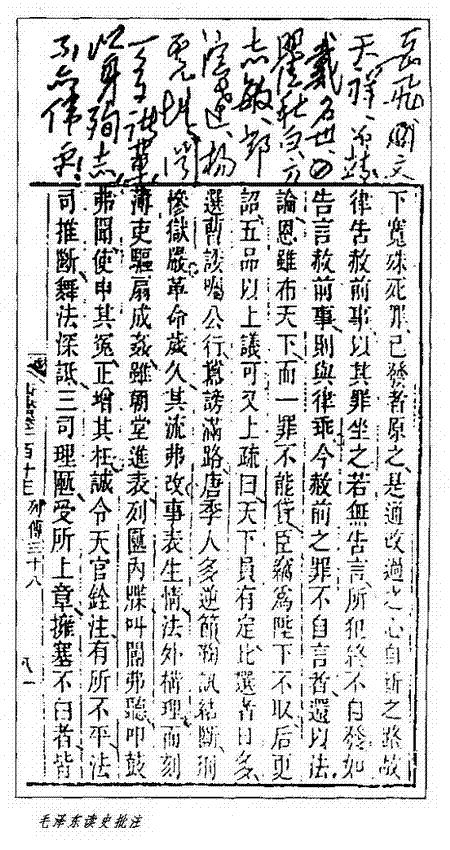 岳飛、文
天祥、曾静、
戴名世、
瞿秋白、方
志敏、鄧
演達、楊
虎城、闻
一多諸輩，
以身殉志，
不亦偉乎！
下寬殊死罪已發者原之是通改過之心自新之路故
律告赦前事以其罪坐之若無告言所犯終不自發如
告言赦前事則與律乖今赦前之罪不自言者還以法
論恩雖布天下而一罪不能貸臣竊為陛下不取后更
詔五品以上議可又上疏曰天下員有定比選者日多
選曹諉囑公行囂謗滿路唐季人多逆節鞫訊結斷刑
慘獄嚴革命歲久其流弗改事表生情法外構理而刻
薄吏驅扇成姦雖朝堂進表列匭內牒叫閽弗聽叩鼓
弗聞使申其冤正增其枉誠令天官銓注有所不平法
司推斷舞法深詆三司理匭受所上章擁塞不白者皆
列傳三十八
毛泽东读史批注